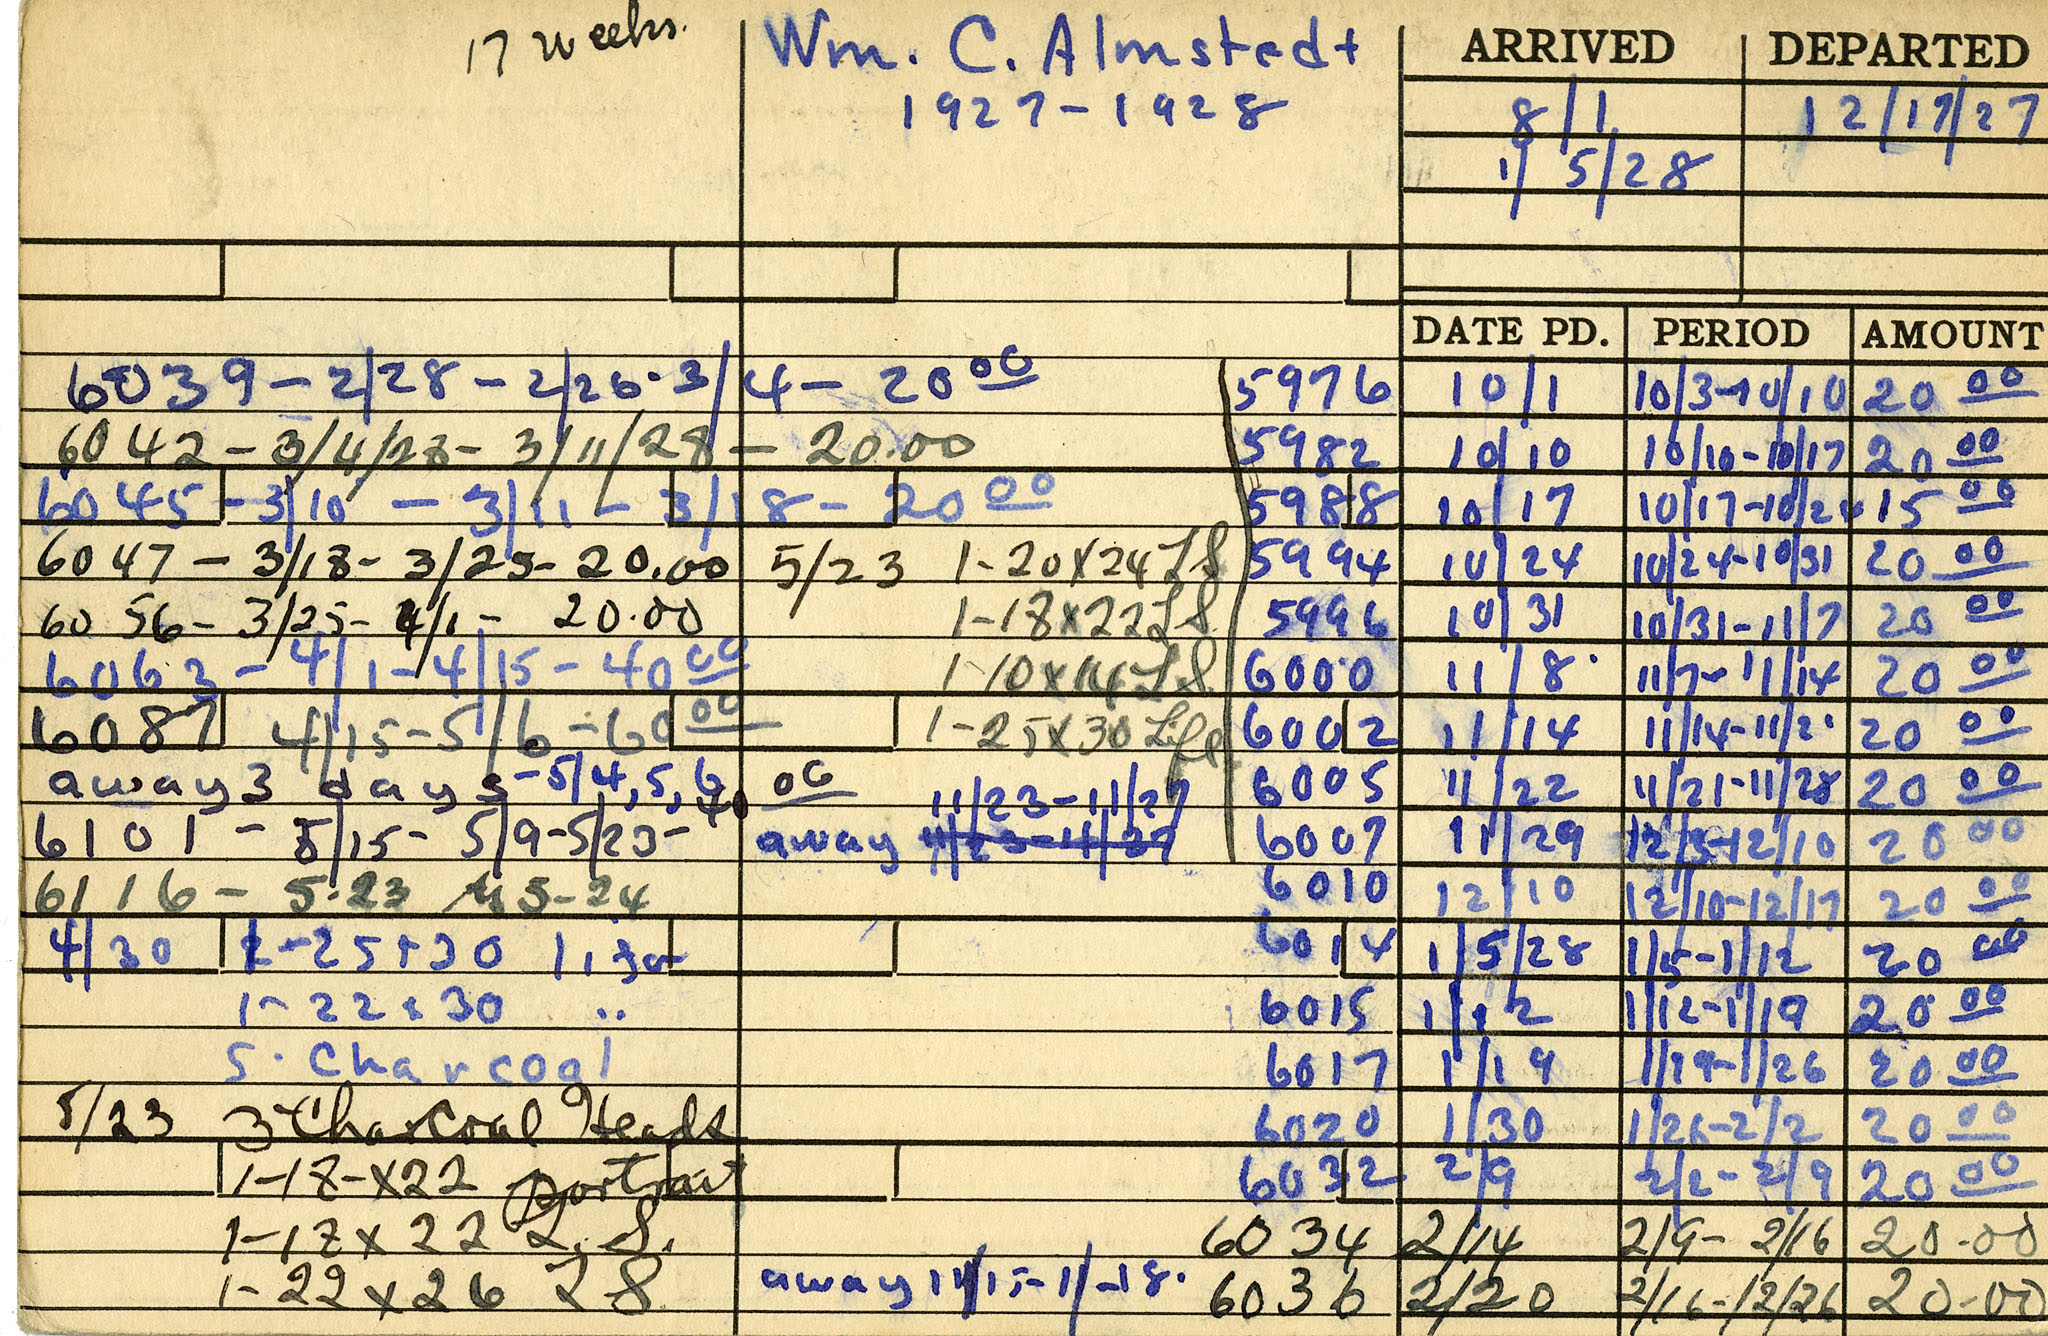 17 weeks.
Wm. C. Almstedt
1927-1928
ARRIVED DEPARTED
8/1 12/17/27
1/5/28
DATE PD. PERIOD AMOUNT
6039 - 2/28 - 2/26-3/4 - 20 00
5976 10/1 10/3-10/10 20 00
6042 - 3/4/28 - 3/11/28 - 20.00
5982 10/10 10/10-10/17 20 00
6045 - 3/10 - 3/11 - 3/18 - 20 00
5988 10/17 10/17-10/24 15 00
6047 - 3/18 - 3/25 - 20.00 5/23 1-20x24 L.S.
5994 10/24 10/24-10/31 20 00
6056 - 3/25 - 4/1 - 20.00 1-18x22 L.S.
5996 10/31 10/31-11/7 20 00
6063 - 4/1-4/15 - 40 00 1-10x14 L.S.
6000 11/8 11/7-11/14 20 00
6087 4/15-5/6 - 60 00 1-25x30 Life
6002 11/14 11/14-11/21 20 00
away 3 days - 5/4, 5, 6 11/23-11/27
6005 11/22 11/21-11/28 20 00
6101 - 5/15 - 5/9-5/23 - 40 00 away
6007 11/29 12/3-12/10 20 00
6116 - 5-23 5-24
6010 12/10 12/10-12/17 20 00
4/30 25x30
6014 1/5/28 1/5-1/12 20 00
1-22x30 "
6015 1/12 1/12-1/19 20 00
5. Charcoal
6017 1/19 1/19-1/26 20 00
5/23 3-Charcoal Heads
6020 1/30 1/26-2/2 20 00
1-18-x22 portrait
6032 2/9 2/2-2/9 20 00
1-18x22 L.S.
6034 2/14 2/9-2/16 20.00
1-22x26 LS away 11/15-11/-18.
6036 2/20 2/16-/2/26 20-00